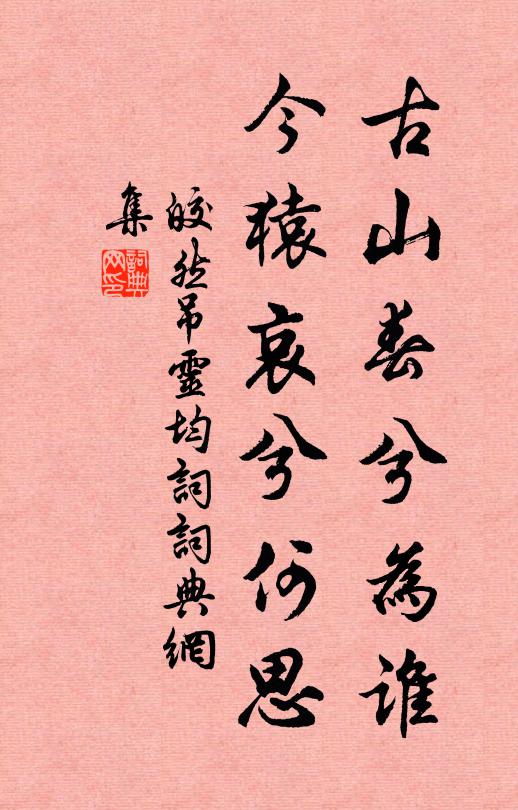 古山春兮為誰
今猿哀兮何思
皎然吊靈均詞詞典網
集
詞典
网印